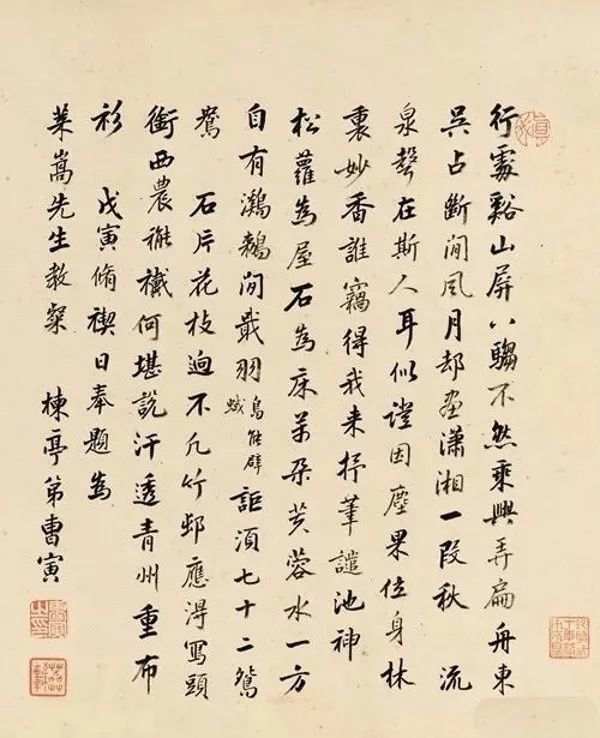 行處谿山屏八騶不然乘興弄扁舟東
吳占斷閒風月却畫瀟湘一段秋 流
泉聲在斯人耳似證因塵果位身林
裏妙香誰竊得我來抒筆譴池神
松蘿為屋石為床萬朵芙蓉水一方
自有鸂鶒間戢羽鳥能辟蜮詎須七十二鴛
鴦 石片花枝迥不凡竹邨應得寫頭
銜西農褦襶何堪說汗透青州重布
衫 戊寅脩禊日奉題為
萊嵩先生教粲 楝亭弟曹寅